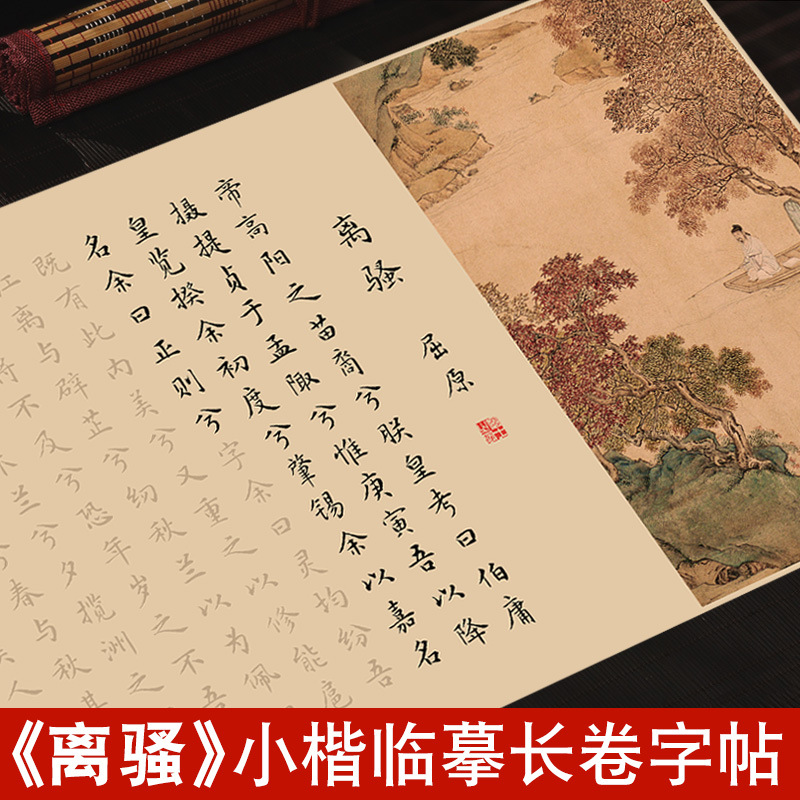 离骚
屈原
帝高阳之苗裔兮朕皇考曰伯庸
摄提贞于孟陬兮惟庚寅吾以降
皇览揆余初度兮肇锡余以嘉名
名余曰正则兮字余曰灵均纷吾
既有此内美兮又重之以修能扈
江离与辟芷兮纫秋兰以为佩
将不及兮恐年岁之不吾
木兰兮夕揽洲之
兮春与秋其
人
《离骚》小楷临摹长卷字帖